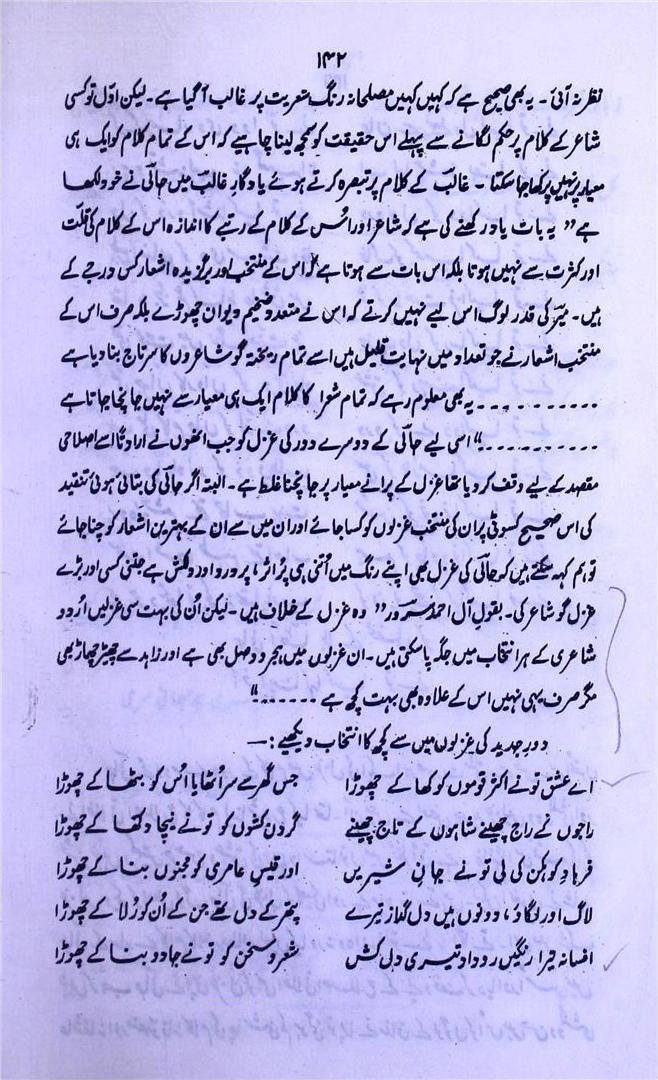 ۱۴۲
نظر نہ آئی۔ یہ بھی صحیح ہے کہ کہیں کہیں مصلحانہ رنگ شعریت پر غالب آ گیا ہے۔ لیکن اوّل تو کسی
شاعر کے کلام پر حکم لگانے سے پہلے اس حقیقت کو سمجھ لینا چاہیے کہ اس کے تمام کلام کو ایک ہی
معیار پر نہیں پرکھا جا سکتا۔ غالب کے کلام پر تبصرہ کرتے ہوئے یادگارِ غالب میں حالی نے خود لکھا
ہے "یہ بات یاد رکھنے کی ہے کہ شاعر اور اُس کے کلام کے رتبے کا اندازہ اس کے کلام کی قلّت
اور کثرت سے نہیں ہوتا بلکہ اس بات سے ہوتا ہے کہ اس کے منتخب اور برگزیدہ اشعار کس درجے کے
ہیں۔ میر کی قدر لوگ اس لیے نہیں کرتے کہ اس نے متعدد ضخیم دیوان چھوڑے بلکہ صرف اس کے
منتخب اشعار نے جو تعداد میں نہایت قلیل ہیں اسے تمام ریختہ گو شاعروں کا سرتاج بنا دیا ہے
........... یہ بھی معلوم رہے کہ تمام شعرا کا کلام ایک ہی معیار سے نہیں جانچا جاتا ہے
..........." اسی لیے حالی کے دوسرے دور کی غزل کو جب انھوں نے ارادتاً اسے اصلاحی
مقصد کے لیے وقف کر دیا تھا غزل کے پرانے معیار پر جانچنا غلط ہے۔ البتہ اگر حالی کی بتائی ہوئی تنقید
کی اس صحیح کسوٹی پر ان کی منتخب غزلوں کو کسا جائے اور ان میں سے ان کے بہترین اشعار کو چنا جائے
تو ہم کہہ سکتے ہیں کہ حالی کی غزل بھی اپنے رنگ میں اُتنی ہی پُر اثر، پر درد اور دلکش ہے جتنی کسی اور بڑے
غزل گو شاعر کی۔ بقول آل احمد سرور "وہ غزل کے خلاف ہیں۔ لیکن اُن کی بہت سی غزلیں اُردو
شاعری کے ہر انتخاب میں جگہ پا سکتی ہیں۔ ان غزلوں میں ہجر و وصل بھی ہے اور زاہد سے چھیڑ چھاڑ بھی
مگر صرف یہی نہیں اس کے علاوہ بھی بہت کچھ ہے ......."
دورِ جدید کی غزلوں میں سے کچھ کا انتخاب دیکھیے :—
اے عشق تو نے اکثر قوموں کو کھا کے چھوڑا جس گھر سے سر اُٹھایا اُس کو بٹھا کے چھوڑا
راجوں کے راج چھینے شاہوں کے تاج چھینے گردن کشوں کو تو نے نیچا دکھا کے چھوڑا
فرہادِ کوہکن کی لی تو نے جانِ شیریں اور قیسِ عامری کو مجنوں بنا کے چھوڑا
لاگ اور لگاؤ، دونوں ہیں دل گداز تیرے پتھر کے دل تھے جن کے اُن کو رُلا کے چھوڑا
افسانہ تیرا رنگیں روداد تیری دل کش شعر و سخن کو تو نے جادو بنا کے چھوڑا